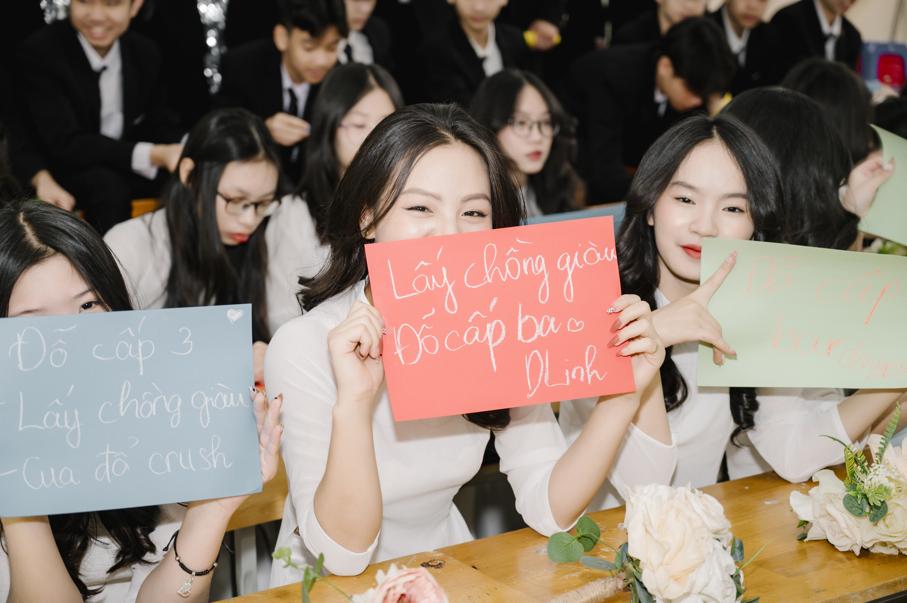 Đỗ cấp 3
- Lấy chồng giàu
- Cua đổ crush
Lấy chồng giàu
Đỗ cấp ba
DLinh
Đỗ cấp